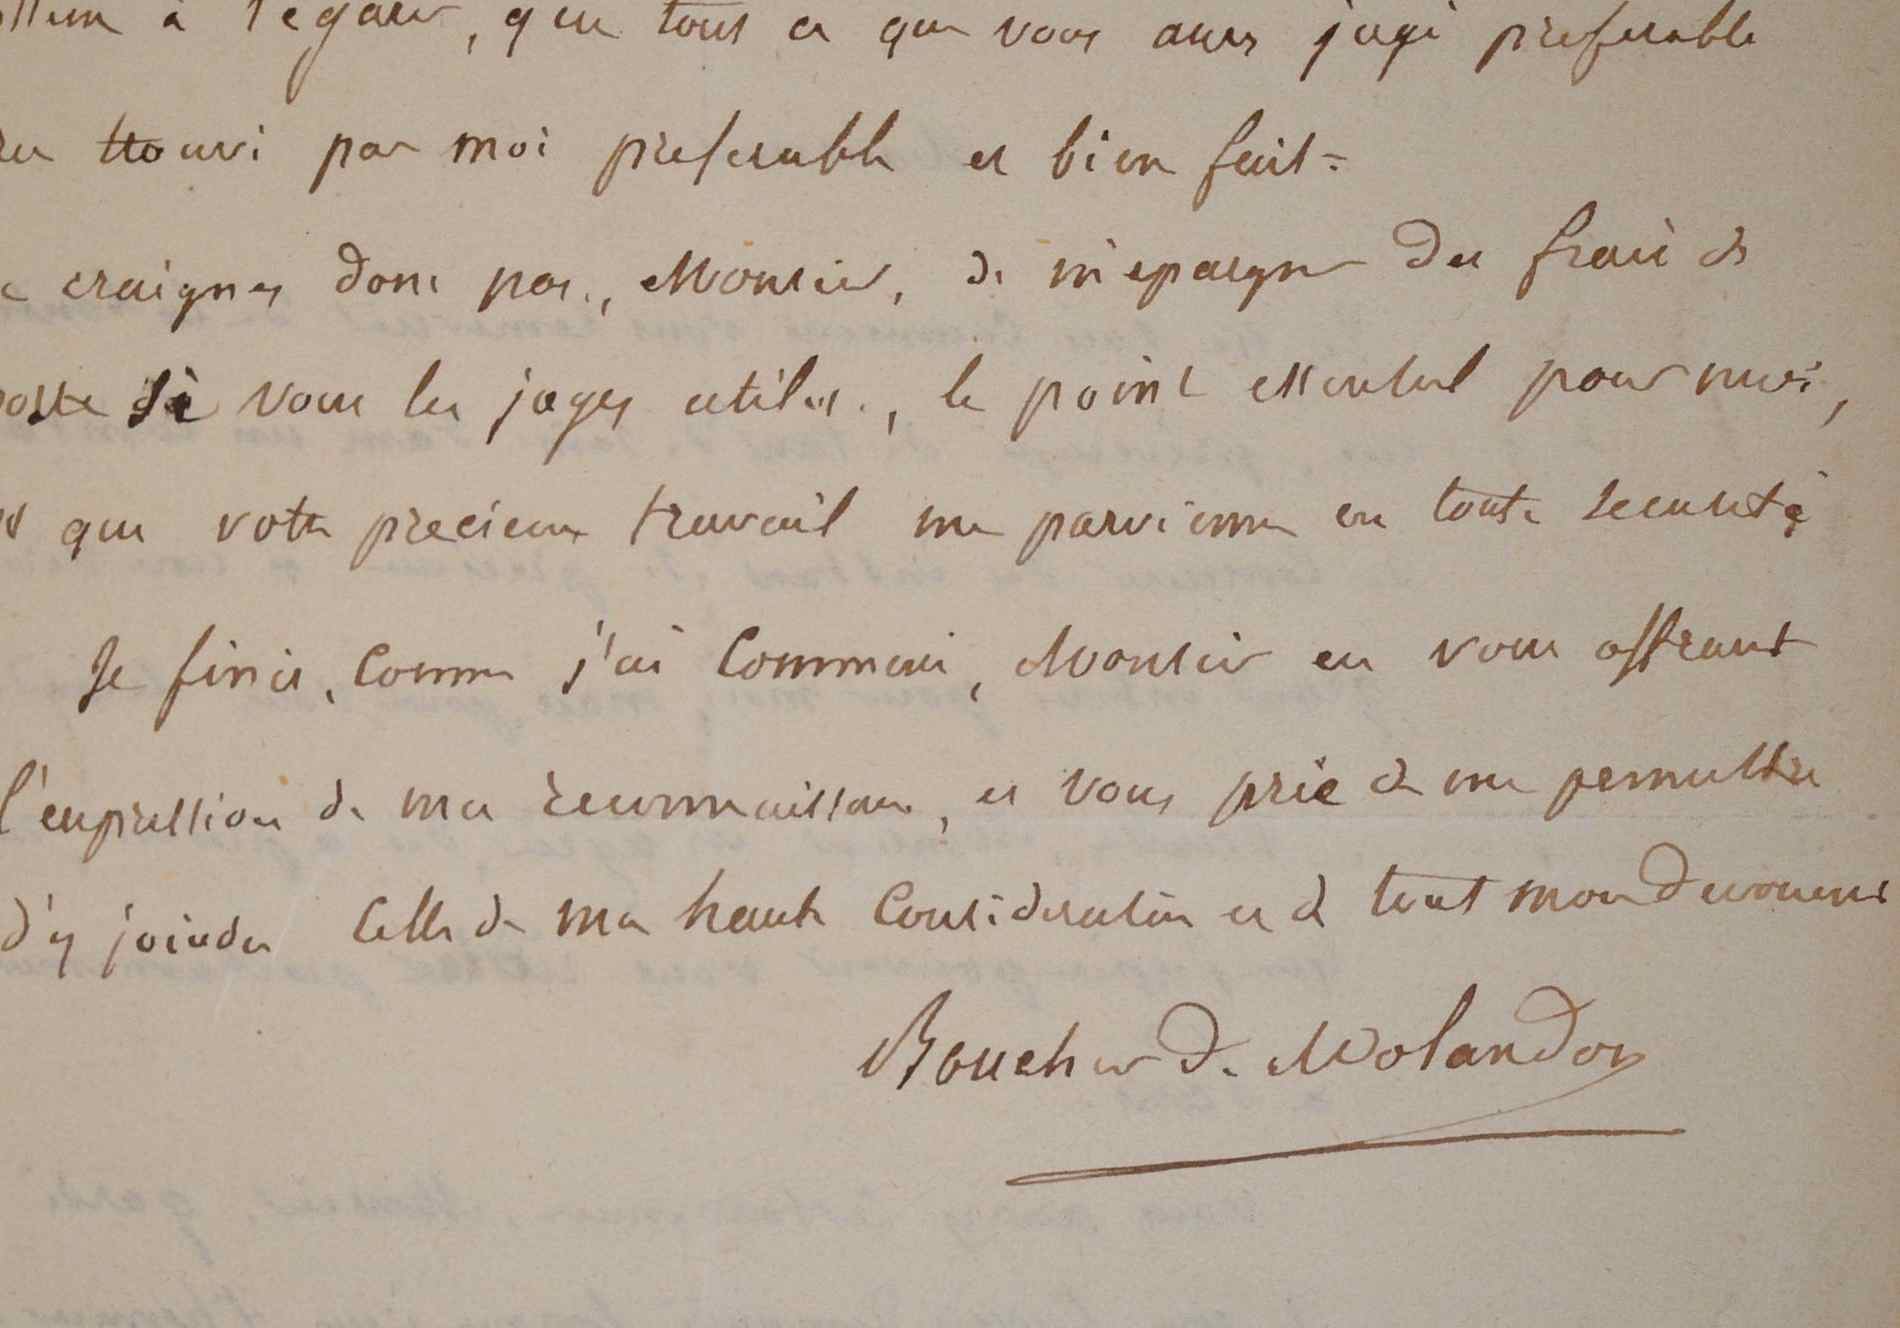 à l'égard, que tout ce que vous aurez jugé preferable
trouvé par moi preferable et bien fait.
craignez donc pas, Monsieur, de m'epargner des frais de
si vous les jugez utiles, le point essentiel pour moi,
que votre precieux travail me parvienne en toute securité
Je finis, comme j'ai commencé, Monsieur en vous offrant
l'expression de ma reconnaissance, et vous prie de me permettre
d'y joindre celle de ma haute consideration et de tout mon devouement
Boucher de Molandon